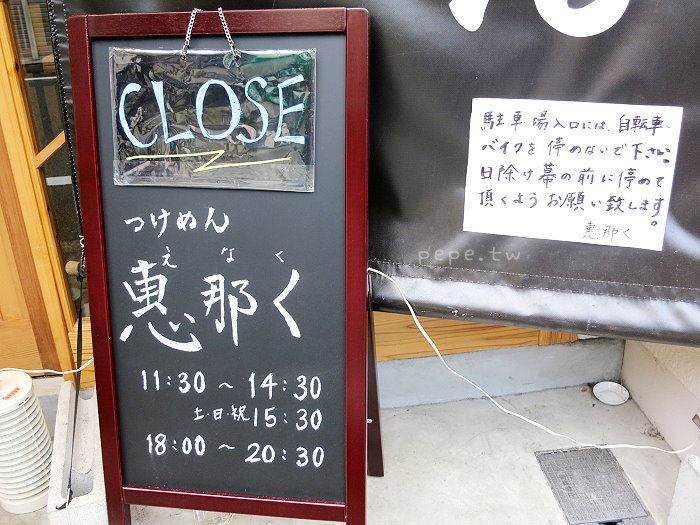 CLOSE
つけめん
えなく
恵那く
11:30 ～ 14:30
土・日・祝 15:30
18:00 ～ 20:30
駐車場入口には、自転車、
バイクを停めないで下さい。
日除け幕の前に停めて
頂くようお願い致します。
恵那く
pepe.tw